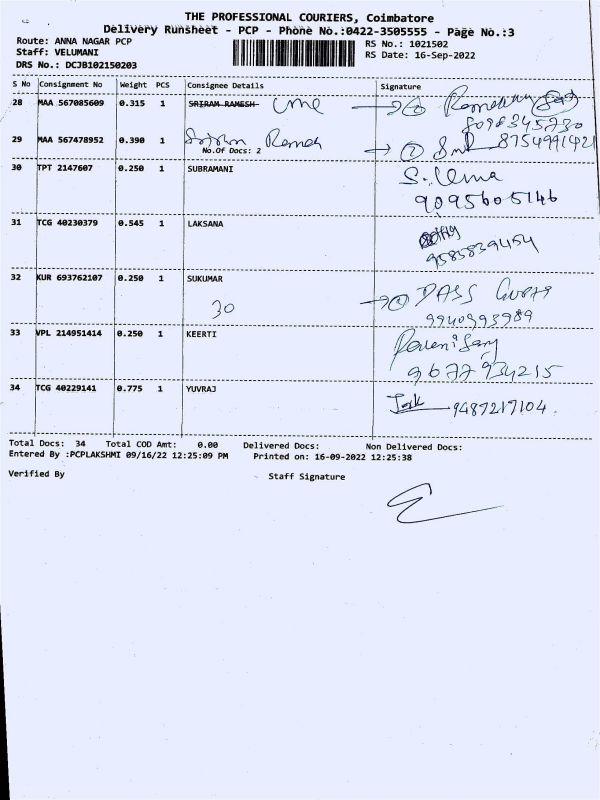 THE PROFESSIONAL COURIERS, Coimbatore
Delivery Runsheet - PCP - Phone No.:0422-3505555 - Page No.:3
Route: ANNA NAGAR PCP RS No.: 1021502
Staff: VELUMANI RS Date: 16-Sep-2022
DRS No.: DCJB102150203
S No Consignment No Weight PCS Consignee Details Signature
28 MAA 567085609 0.315 1 SRIRAM RAMESH
29 MAA 567478952 0.390 1 8754991421
No.Of Docs: 2
30 TPT 2147607 0.250 1 SUBRAMANI S. Uma
9095605146
31 TCG 40230379 0.545 1 LAKSANA
9585839454
32 KUR 693762107 0.250 1 SUKUMAR DASS Gupta
30 9940993989
33 VPL 214951414 0.250 1 KEERTI
9677934215
34 TCG 40229141 0.775 1 YUVRAJ 9487217104
Total Docs: 34 Total COD Amt: 0.00 Delivered Docs: Non Delivered Docs:
Entered By :PCPLAKSHMI 09/16/22 12:25:09 PM Printed on: 16-09-2022 12:25:38
Verified By Staff Signature